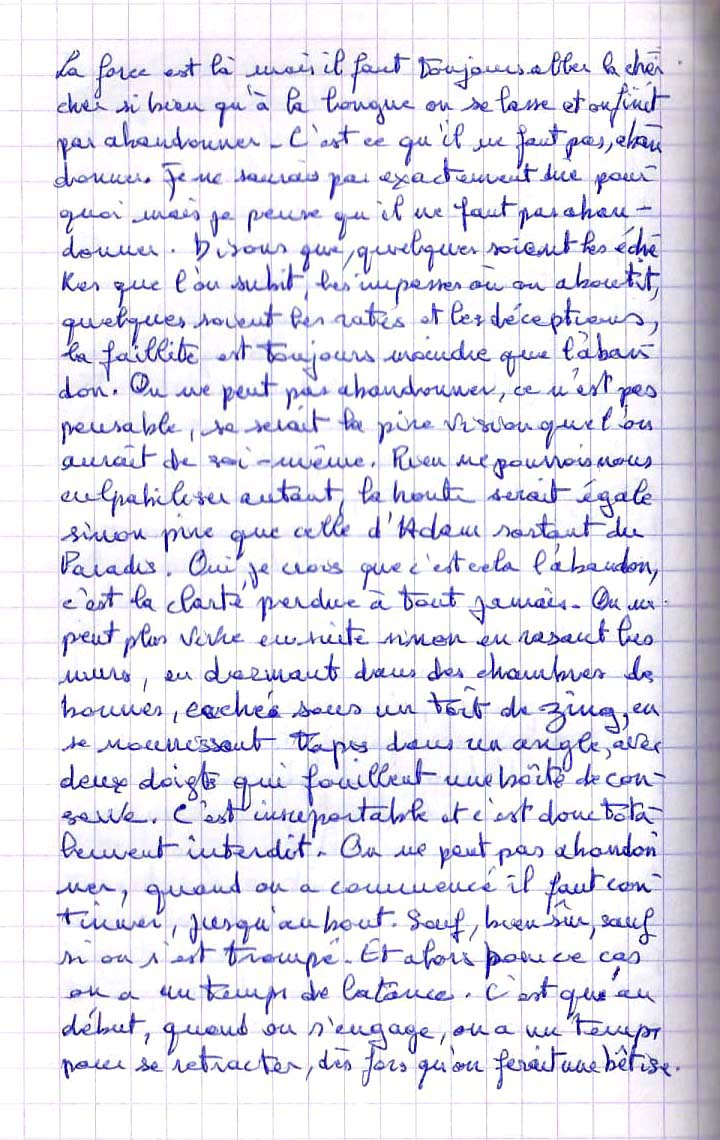 La force est là mais il faut toujours aller la cher
cher si bien qu'à la longue on se lasse et on finit
par abandonner - C'est ce qu'il ne faut pas, aban
donner. Je ne saurais pas exactement dire pour
quoi mais je pense qu'il ne faut pas aban -
donner. Disons que, quelques soient les éche
Kes que l'on subit, les impasses où on aboutit,
quelques soient les ratés et les déceptions,
la faillite est toujours moindre que l'aban
don. On ne peut pas abandonner, ce n'est pas
pensable, se serait la pire vision que l'on
aurait de soi-même. Rien ne pourrois nous
culpabiliser autant, la honte serait égale
sinon pire que celle d'Adam sortant du
Paradis. Oui, je crois que c'est cela l'abandon,
c'est la clarté perdue à tout jamais. On ne
peut plus vivre ensuite sinon en rasant les
murs, en dormant dans des chambres de
bonnes, caché sous un toit de zing, en
se nourissant tapis dans un angle, avec
deux doigts qui fouillent une boîte de con-
serve. C'est insuportable et c'est donc tota
lement interdit. On ne peut pas abandon
ner, quand on a commencé il faut con-
tinuer, jusqu'au bout. Sauf, bien sûr, sauf
si on s'est trompé. Et alors pour ce cas
on a un temps de latence. C'est que au
début, quand on s'engage, on a un temps
pour se retracter, dès fois qu'on ferait une bêtise.